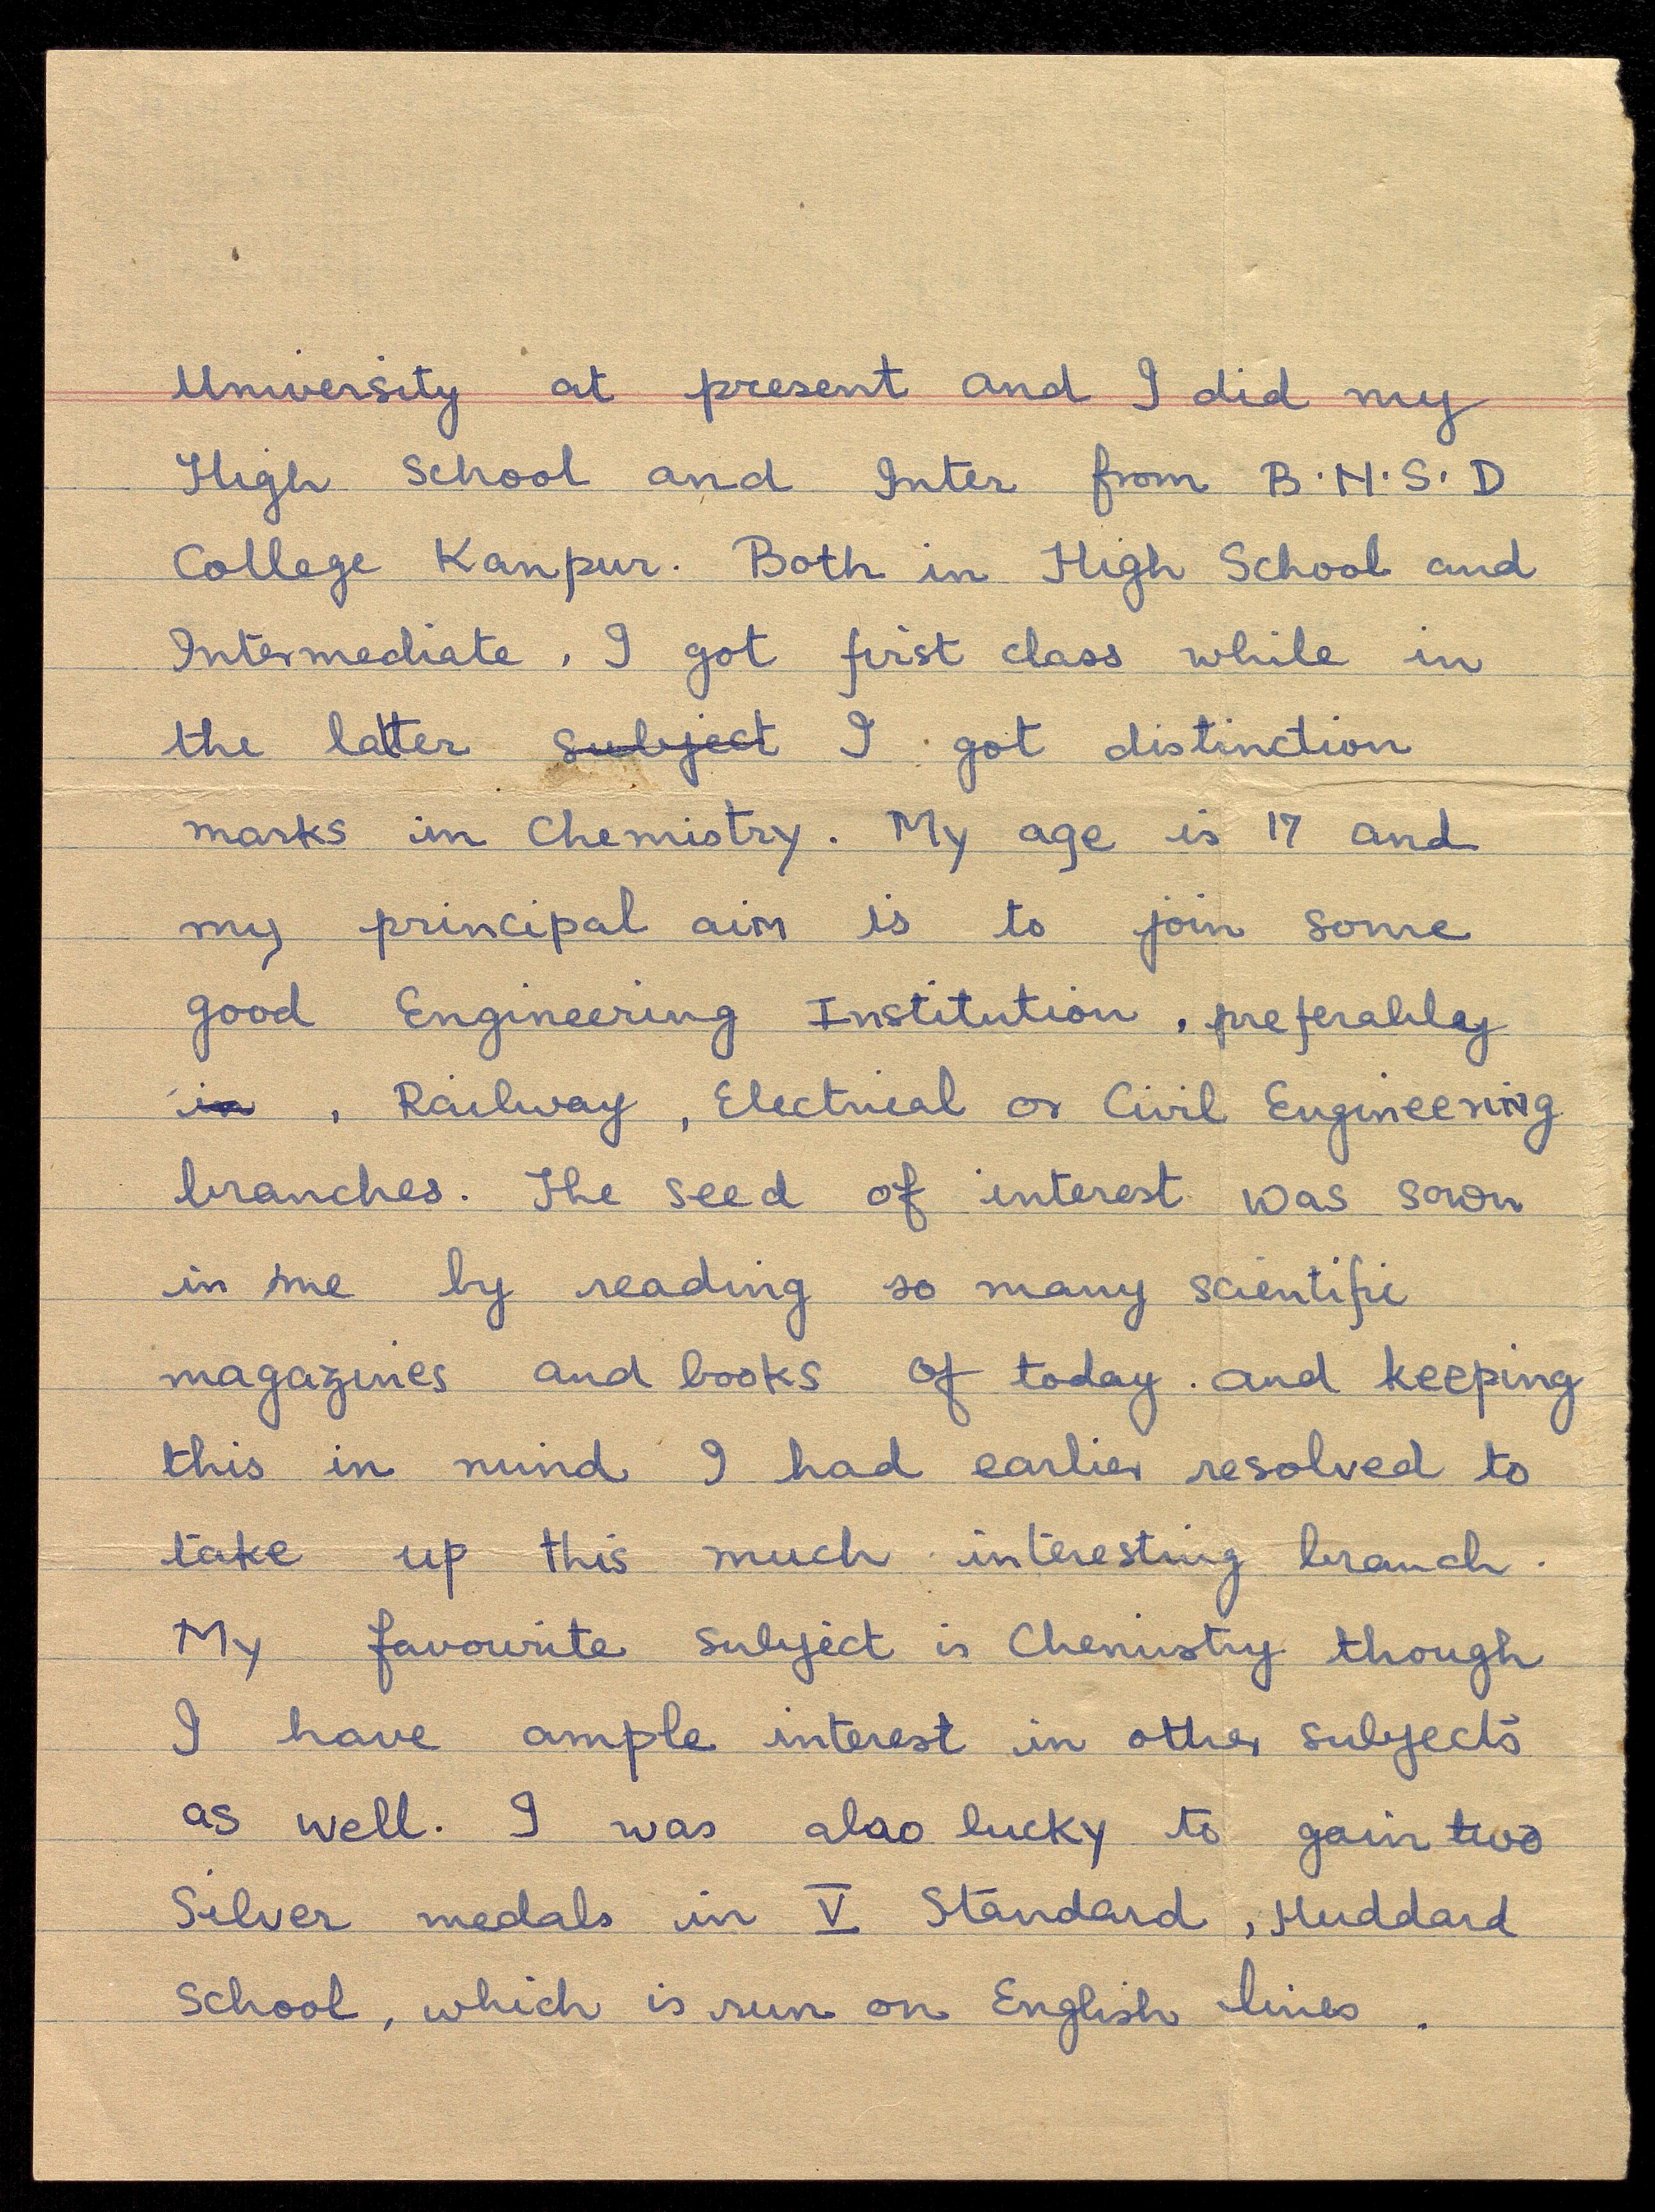 University at present and I did my
High School and Inter from B.N.S.D
College Kanpur. Both in High School and
Intermediate, I got first class while in
the latter subject I got distinction
marks in Chemistry. My age is 17 and
my principal aim is to join some
good Engineering Institution, preferabley
in , Railway, Electrical or Civil Engineering
branches. The seed of interest was sown
in me by reading so many scientific
magazines and books of today. and keeping
this in mind I had earlier resolved to
take up this much interesting branch.
My favourite subject is Chemistry though
I have ample interest in other subjects
as well. I was also lucky to gain two
Silver medals in V Standard, Huddard
School, which is run on English lines.